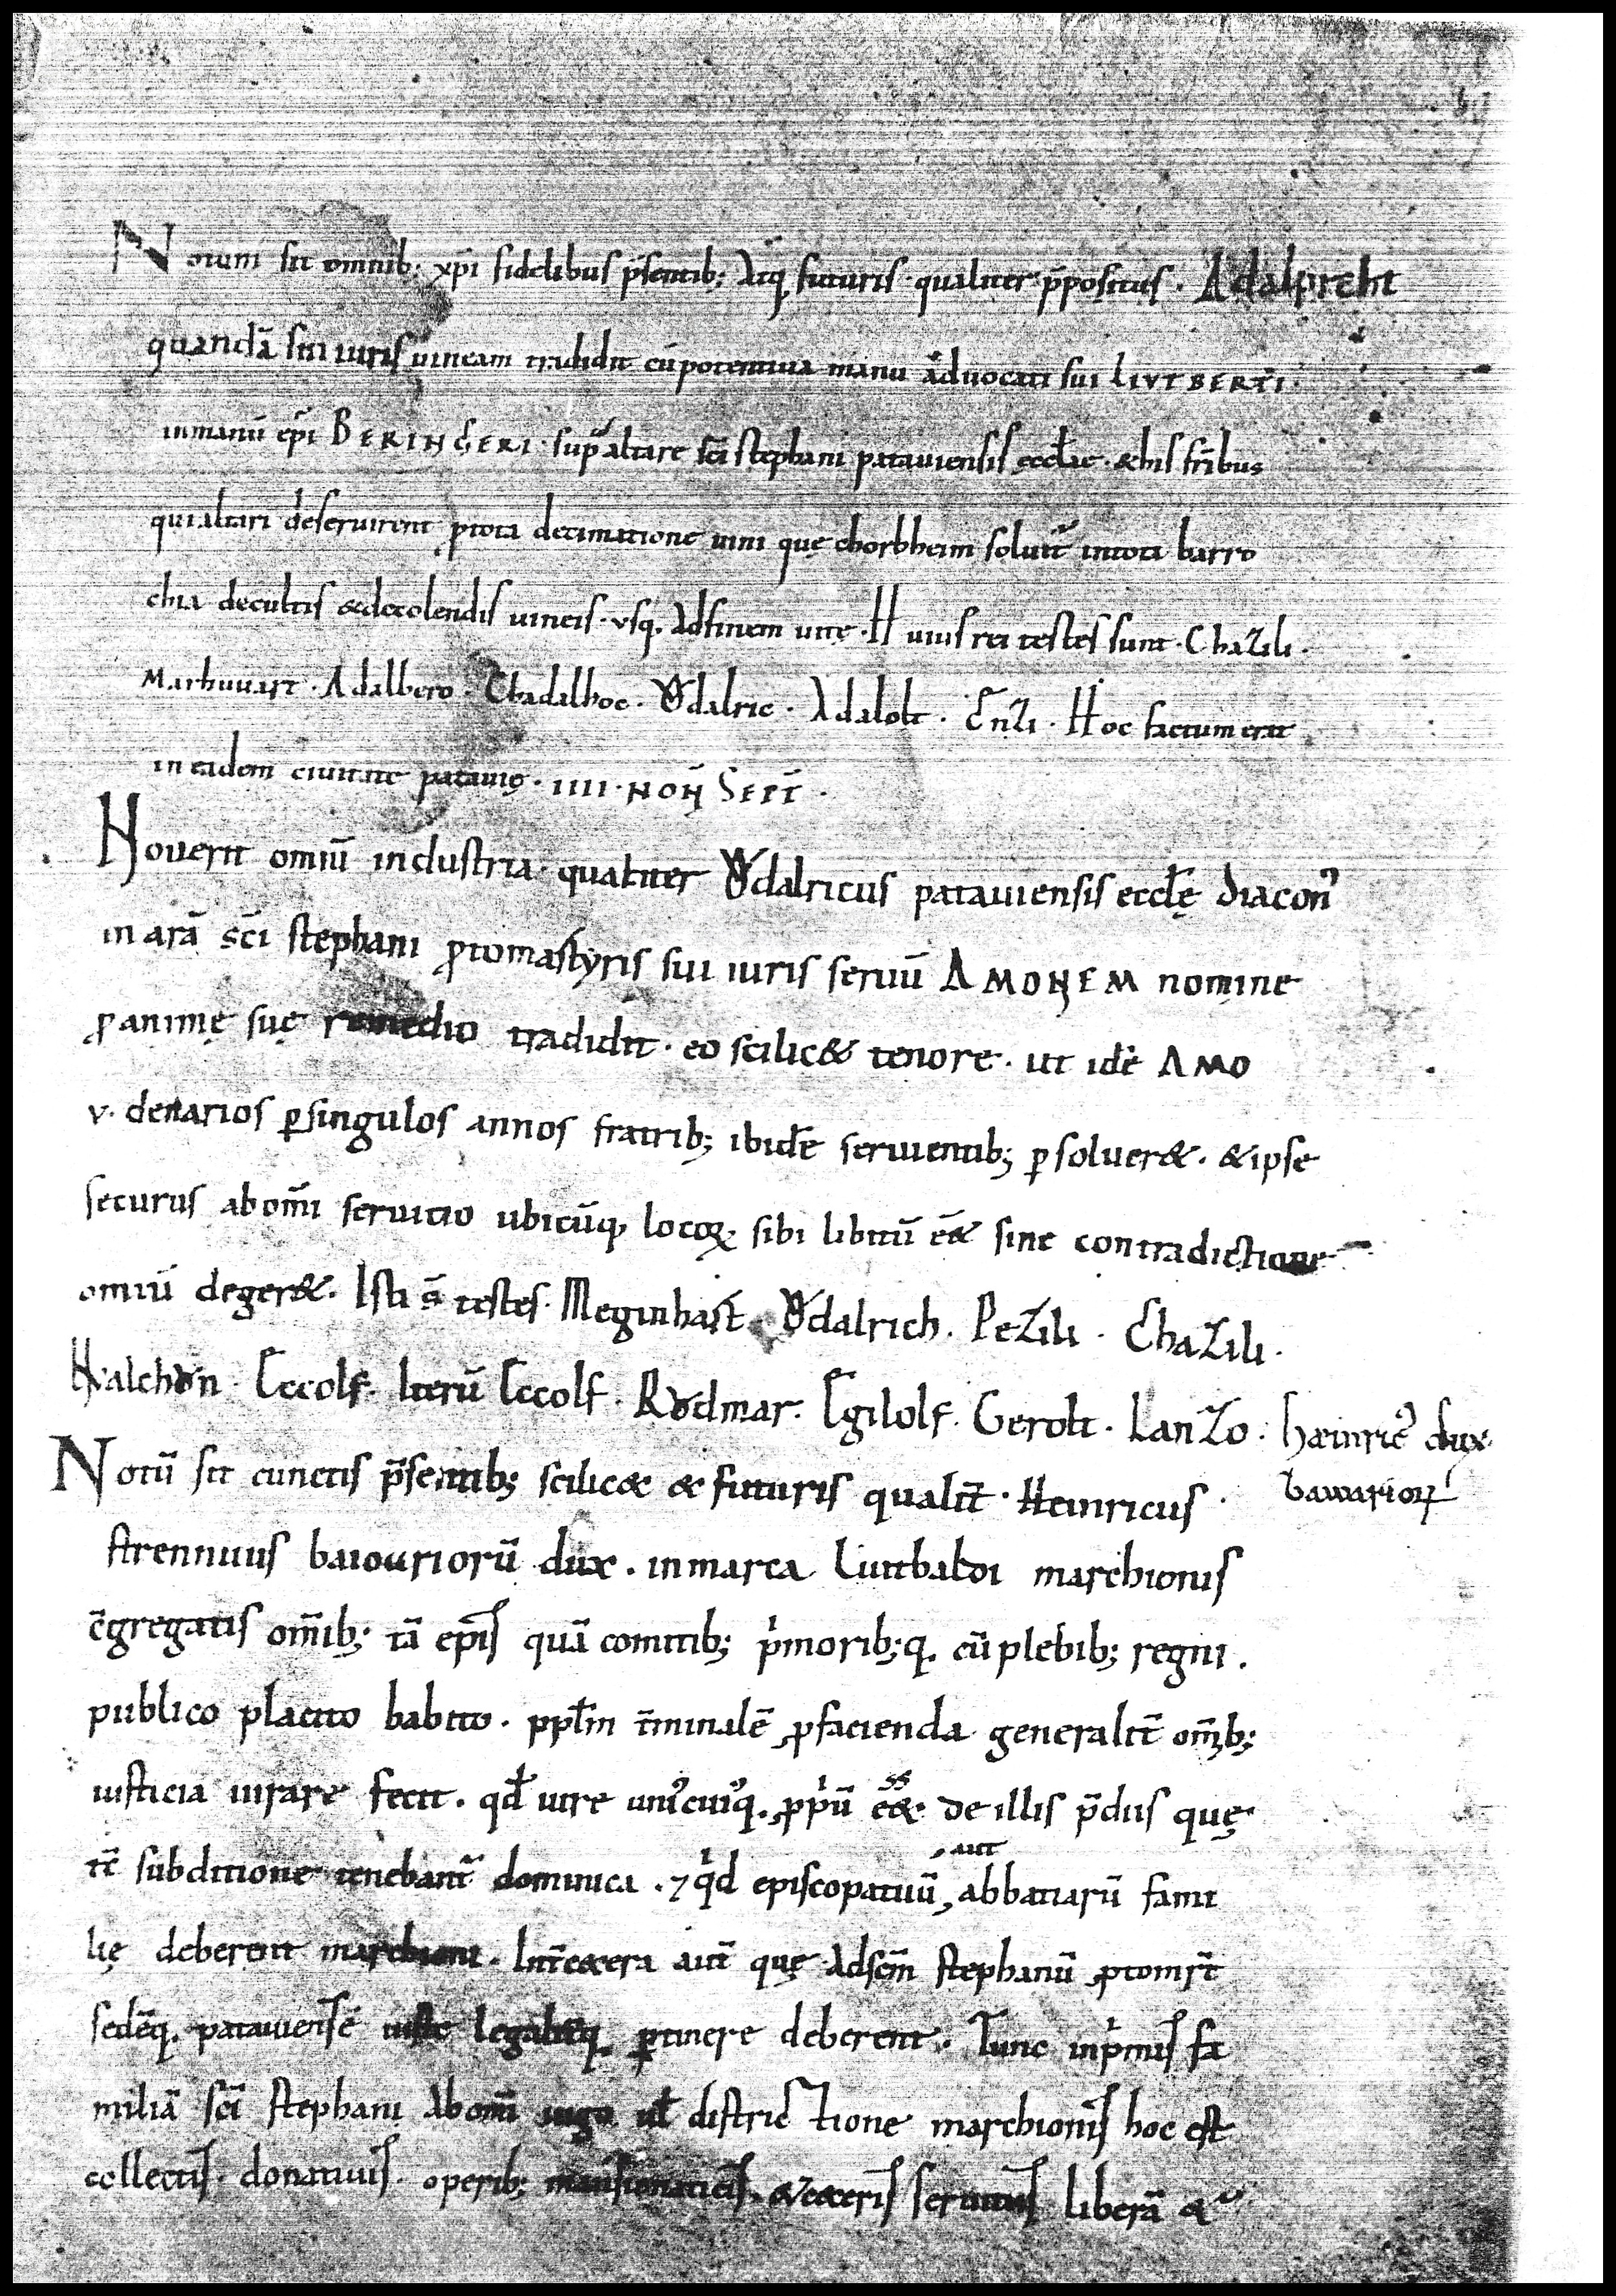 Notum sit omnib; xp̄i fidelibus p̄sentib; atq; futuris · qualiter p̄positus · Adalpreht
quandā sui iuris uineam tradidit cū potentiua manu aduocati sui LIVTBERTI ·
in manū ep̄i BERINGERI · sup altare sc̄i stephani patauiensis eccłae · & his fr̄ibus
qui altari deseruirent ꝓ tota decimatione uini quę chorbheim soluit᷑ in tota barro
chia de cultis & de colendis uineis · usq; ad finem uitę · Huius rei testes sunt · Chazili ·
Marhuuart · Adalbero · Chadalhoc · Vͦdalric · Adalolt · Enzi · Hoc factum erat
in eadem ciuitate patauię · IIII · NON̄ SEPT̄ ·
Nouerit omiū industria · qualiter Vͦdalricus patauiensis eccłę diacon᾿
in arā sc̄i stephani ꝓtomartyris sui iuris seruū AMONEM nomine
ꝓ animę suę remedio tradidit · eo scilic& tenore · ut idē AMO
v · denarios ꝑ singulos annos fratrib; ibidē seruientib; ꝑsoluer& · & ipse
securus ab om̄i seruitio ubicūq; locoꝝ sibi libitū eē& sine contradictione
omiū deger& · Isti s̄ testes · Meginhart Vͦdalrich · Pezili · Chazili ·
Walchͦn · Eccolf · Iterū Eccolf · Rͦdmar · Egilolf · Gerolt · Lanzo · Hæinric᾿ dux
Notū sit cunctis p̄sentib; scilic& & futuris qualit̄ · Heinricus · bawarioꝝ
strennuus baiouuriorū dux · in marca Liutbaldi marchionis
c̄gregatis om̄ib; tā ep̄is quā comitib; p̍morib;q; cū plebib; regni ·
publico placito habito · ppłm t̄minalē ꝓ facienda generalit̄ om̄ib;
iusticia iurare fecit · qđ iure uni᾿cui᾿q; ꝓp̍ū eēt& · de illis p̄diis quę
tc̄ sub ditione tenebant᷑ dominica · ⁊ q̍d episcopatuū, aut abbatiarū fami
lię deberent marchioni · Int̄ cetera aut̄ quę ad sc̄m stephanū ꝓtomr̄t̄
sedēq; patauiensē iuste legalit̄q; ꝑtinere deberent · Tunc inp̍mis fa
miliā sc̄i stephani ab om̄i iugo uł districtione marchionis hoc est
collectis · donatiuis · operib; mansionaticis · & ceteris seruitiis liberā &